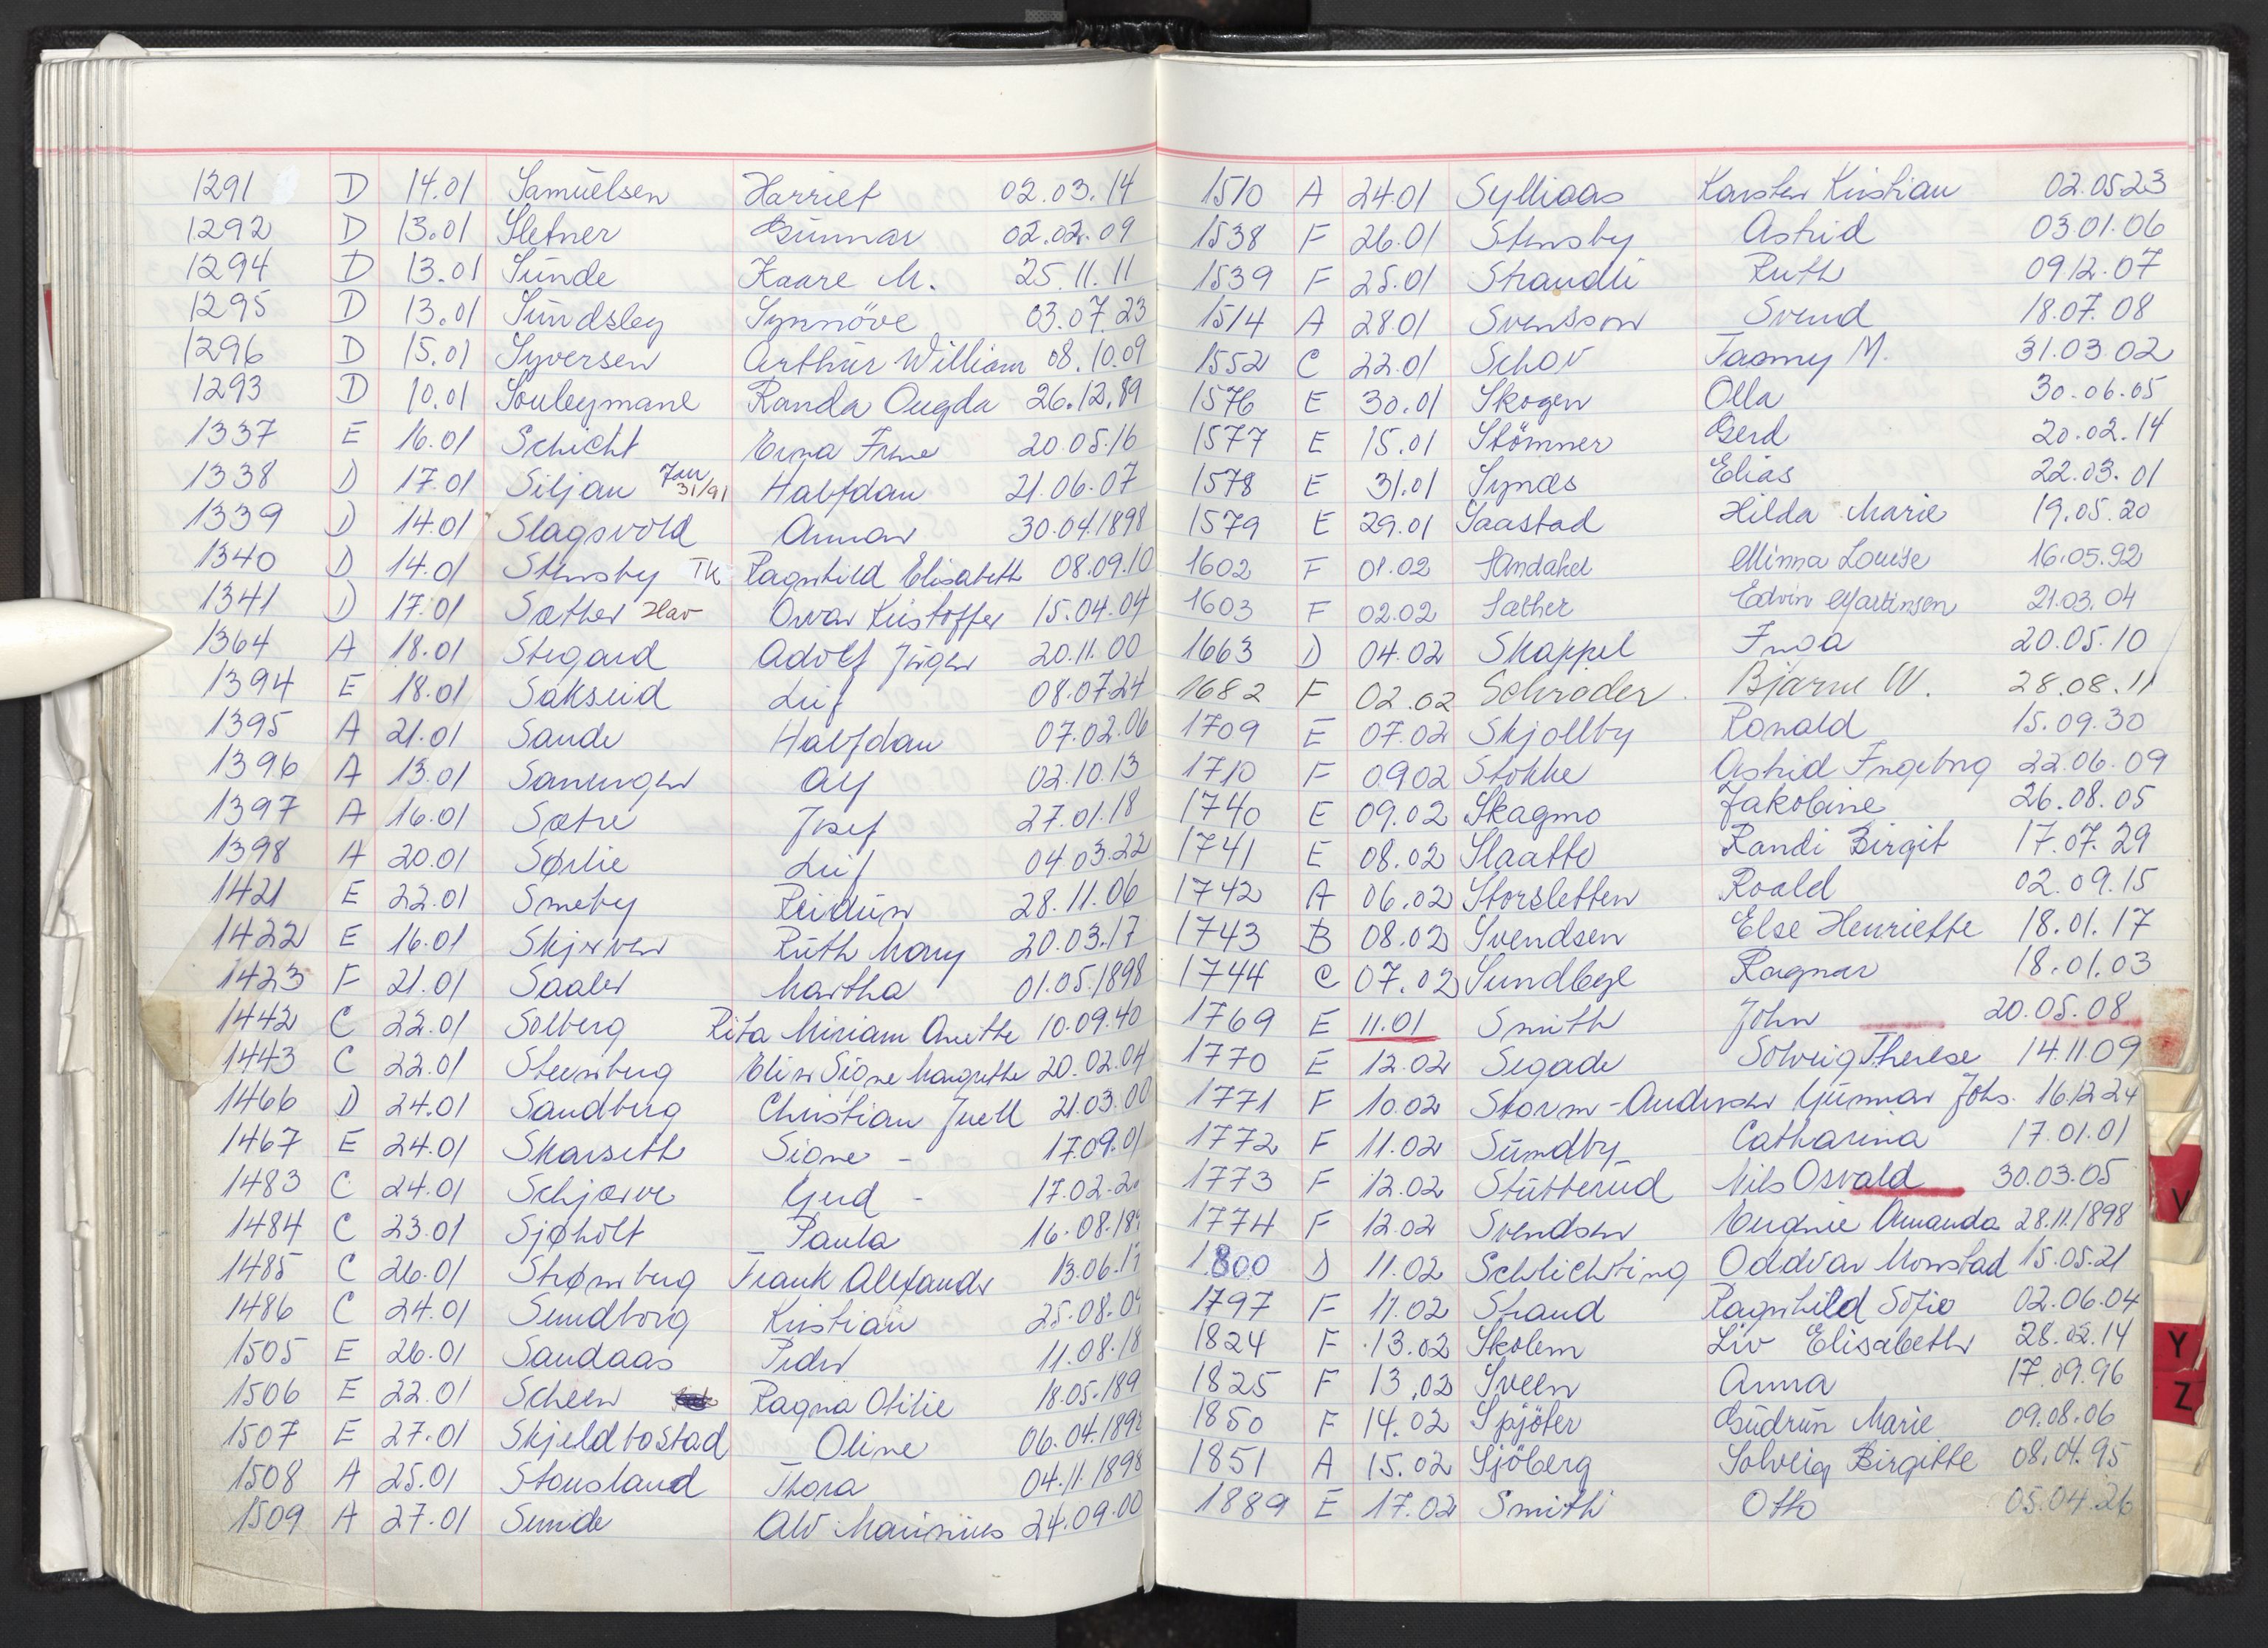 1291 D 14.01 Samuelsen Harriet 02.03.14
1292 D 13.01 Sletner Gunnar 02.02.09
1294 D 13.01 Sunde Kaare M. 25.11.11
1295 D 13.01 Sundsley Synnöve 03.07.23
1296 D 15.01 Syversen Arthur William 08.10.09
1293 D 10.01 Souleymane Randa Ougda 26.12.89
1337 E 16.01 Schicht Erna Irene 20.05.16
1338 D 17.01 Siljan Jan 31/91 Halfdan 21.06.07
1339 D 14.01 Slagsvold Annar 30.04.1898
1340 D 14.01 Stensby TK Ragnhild Elisabeth 08.09.10
1341 D 17.01 Sæther Hav Orvar Kristoffer 15.04.04
1364 A 18.01 Stegard Adolf Jürgen 20.11.00
1394 E 18.01 Sakseid Leif 08.07.24
1395 A 21.01 Sande Halfdan 07.02.06
1396 A 13.01 Sanengen Alf 02.10.13
1397 A 16.01 Sætre Josef 27.01.18
1398 A 20.01 Sørlie Leif 04.03.22
1421 E 22.01 Smeby Reidun 28.11.06
1422 E 16.01 Skjerven Ruth Mary 20.03.17
1423 F 21.01 Saaler Martha 01.05.1898
1442 C 22.01 Solberg Rita Miriam Anette 10.09.40
1443 C 22.01 Steenberg Elise Signe Margrethe 20.02.04
1466 D 24.01 Sandberg Christian Juell 21.03.00
1467 E 24.01 Skarseth Signe - 17.09.01
1483 C 24.01 Schjarve Gerd - 17.02.2
1484 C 23.01 Sjøholt Paula 16.08.189
1485 C 26.01 Strømberg Frank Alexander 13.06.17
1486 C 24.01 Sundborg Kristian 25.08.09
1505 E 26.01 Sandaas Peder 11.08.18
1506 E 22.01 Scheen Ragna Otilie 18.05.189
1507 E 27.01 Skjeldbostad Oline 06.04.1892
1508 A 25.01 Stousland Thora 04.11.1898
1509 A 27.01 Sunde Alv Marinius 24.09.00
1510 A 24.01 Sylliaas Karsten Kristian 02.05.23
1538 F 26.01 Stensby Astrid 03.01.06
1539 F 25.01 Strandli Ruth 09.12.07
1514 A 28.01 Svensson Svend 18.07.08
1552 C 22.01 Schov M. 31.03.02
1576 E 30.01 Skogen Olla 30.06.05
1577 E 15.01 Stömner Gerd 20.02.14
1578 E 31.01 Synes Elias 22.03.01
1579 E 29.01 Saastad Hilda Marie 19.05.20
1602 F 01.02 Sandakel Minna Louise 16.05.92
1603 F 02.02 Sæther Edvin Martinsen 21.03.04
1663 D 04.02 Skappel Inga 20.05.10
1682 F 02.02 Schrøder Bjarne W. 28.08.11
1709 E 07.02 Skjollby Ronald 15.09.30
1710 F 09.02 Stokke Astrid Ingebrg 22.06.09
1740 E 09.02 Skagmo Jakobine 26.08.05
1741 E 08.02 Slaatto Randi Birgit 17.07.29
1742 A 06.02 Storsletten Roald 02.09.15
1743 B 08.02 Svendsen Else Henriette 18.01.17
1744 C 07.02 Sundbye Ragnar 18.01.03
1769 E 11.01 Smith John 20.05.08
1770 E 12.02 Segade Solveig Therese 14.11.09
1771 F 10.02 Storm-Andersen Gunnar Johs. 16.12.24
1772 F 11.02 Sundby Catharina 17.01.01
1773 F 12.02 Stutterud Nils Osvald 30.03.05
1774 F 12.02 Svendsen Eugenie Amanda 28.11.1898
1800 D 11.02 Schlichting Oddvar Monstad 15.05.21
1797 F 11.02 Strand Ragnhild Sofie 02.06.04
1824 F 13.02 Skolem Liv Elisabeth 28.02.14
1825 F 13.02 Sveen Anna 17.09.96
1850 F 14.02 Spjöter Gudrun Marie 09.08.06
1851 A 15.02 Sjöberg Solveig Birgitte 08.04.95
1889 E 17.02 Smith Otto 05.04.26
V
Y
Z